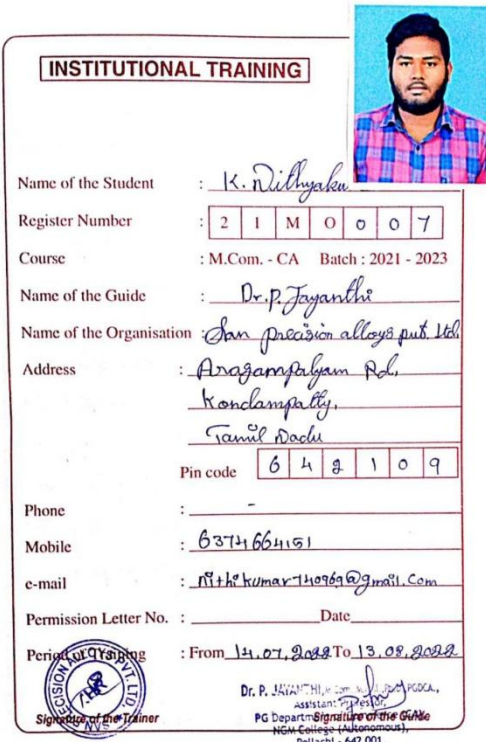 INSTITUTIONAL TRAINING
Name of the Student : K. Nithyaku
Register Number : 2 1 M O 0 0 7
Course : M.Com. - CA Batch : 2021 - 2023
Name of the Guide : Dr. P. Jayanthi
Name of the Organisation : San precision alloys pvt. ltd,
Address : Aragampalyam Rd,
Kondampatty,
Tamil Nadu
Pin code 6 4 2 1 0 9
Phone : -
Mobile : 6374664151
e-mail : nithikumar740969@gmail.com
Permission Letter No. : Date
Period of Training : From 14.07.2022 To 13.08.2022
SAN PRECISION ALLOYS PVT. LTD.
Dr. P. JAYANTHI, PGDCA.,
Assistant Professor,
Signature of the Trainer
PG Department Signature of the Guide
NGM College (Autonomous),
Pollachi - 642 001